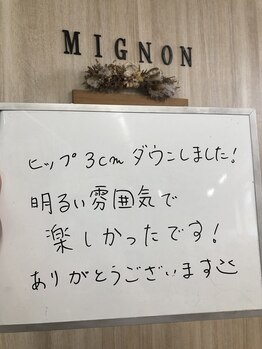 MIGNON
ヒップ3cmダウンしました!
明るい雰囲気で
楽しかったです!
ありがとうございます